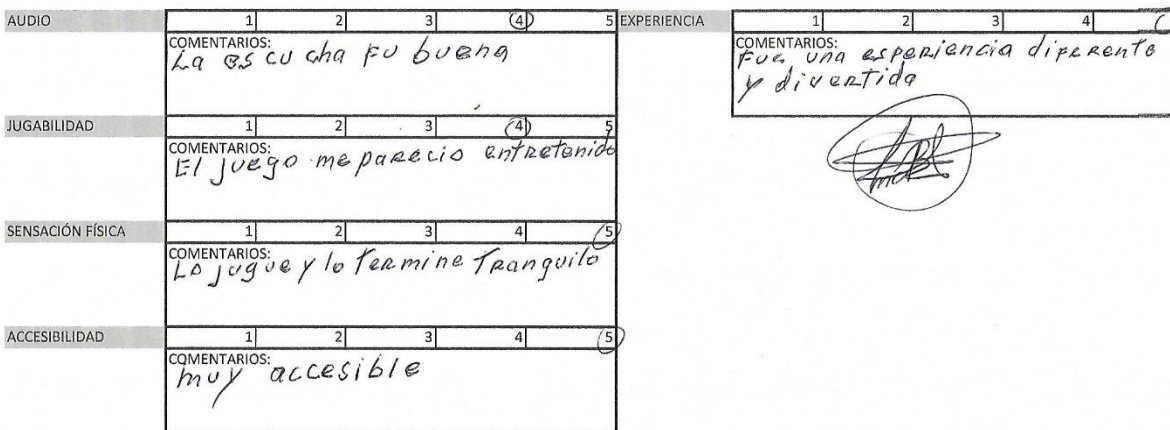 AUDIO 1 2 3 4 5
COMENTARIOS:
La escucha fu buena
JUGABILIDAD 1 2 3 4 5
COMENTARIOS:
El juego me parecio entretenido
SENSACIÓN FÍSICA 1 2 3 4 5
COMENTARIOS:
Lo jugue y lo termine tranquilo
ACCESIBILIDAD 1 2 3 4 5
COMENTARIOS:
muy accesible
EXPERIENCIA 1 2 3 4
COMENTARIOS:
Fue una esperiencia diferente
y divertida